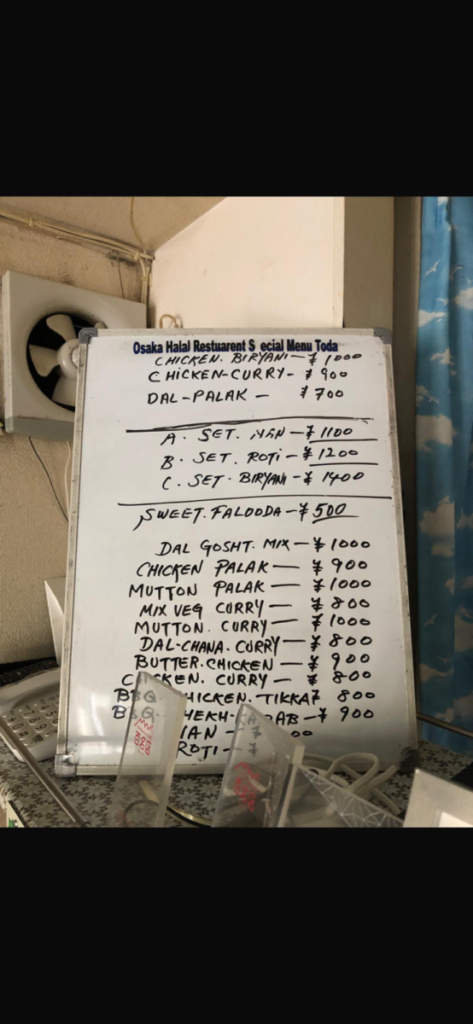 Osaka Halal Restuarent S ecial Menu Toda
CHICKEN. BIRYANI - ¥ 1000
CHICKEN-CURRY- ¥ 900
DAL-PALAK - ¥ 700
A. SET. NAN - ¥ 1100
B. SET. ROTI - ¥ 1200
C. SET. BIRYANI - ¥ 1400
SWEET. FALOODA - ¥ 500
DAL GOSHT. MIX - ¥ 1000
CHICKEN PALAK - ¥ 900
MUTTON PALAK - ¥ 1000
MIX VEG CURRY - ¥ 800
MUTTON. CURRY - ¥ 1000
DAL-CHANA. CURRY - ¥ 800
BUTTER. CHICKEN - ¥ 900
C KEN. CURRY - ¥ 800
BBQ. HICKEN. TIKKA ¥ 800
B Q. HEKH-KABAB - ¥ 900
ROTI -